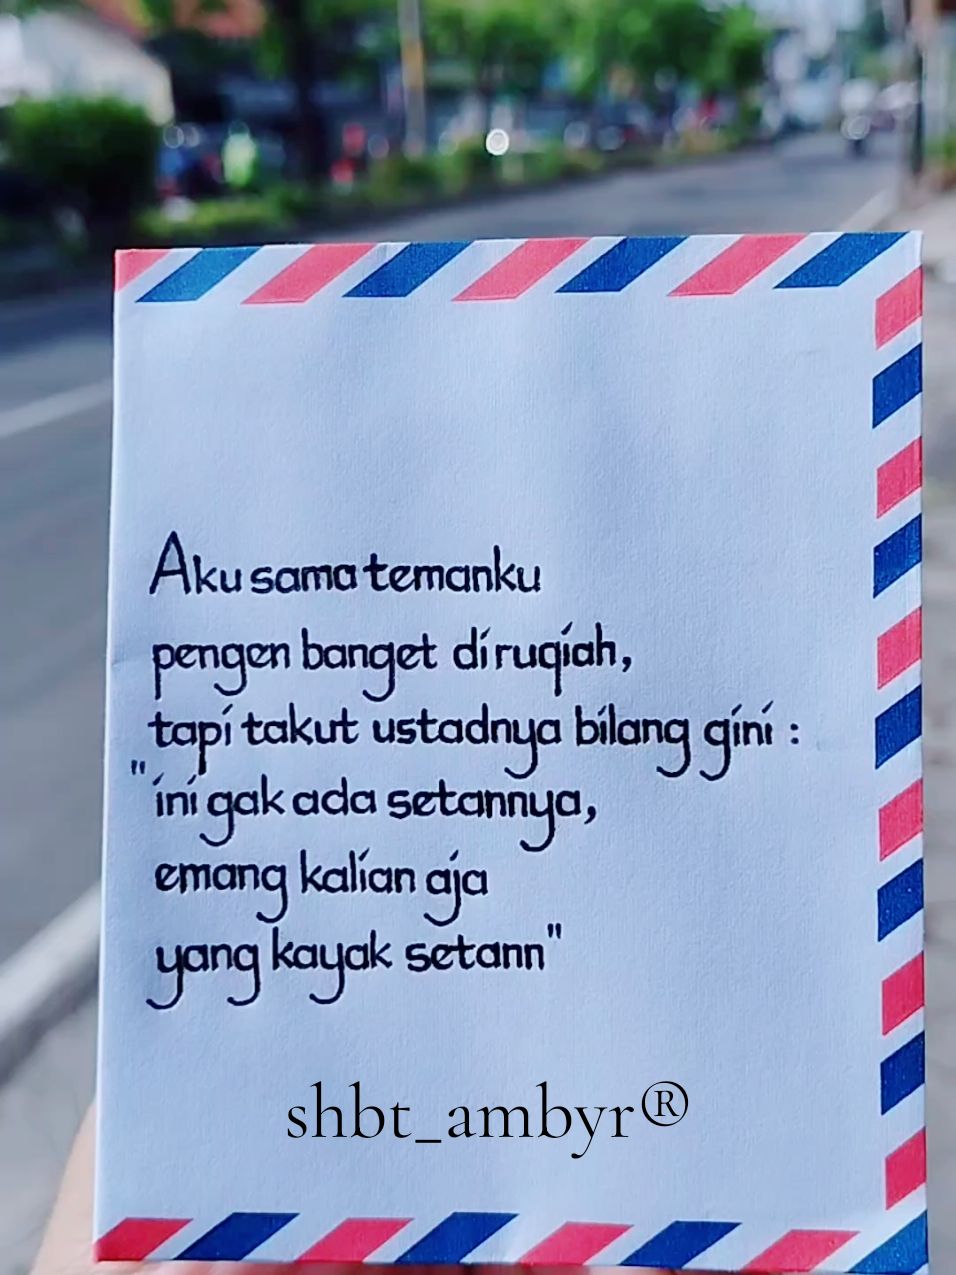 Aku sama temanku
pengen banget diruqiah,
tapi takut ustadnya bilang gini :
"ini gak ada setannya,
emang kalian aja
yang kayak setann"
shbt_ambyr®